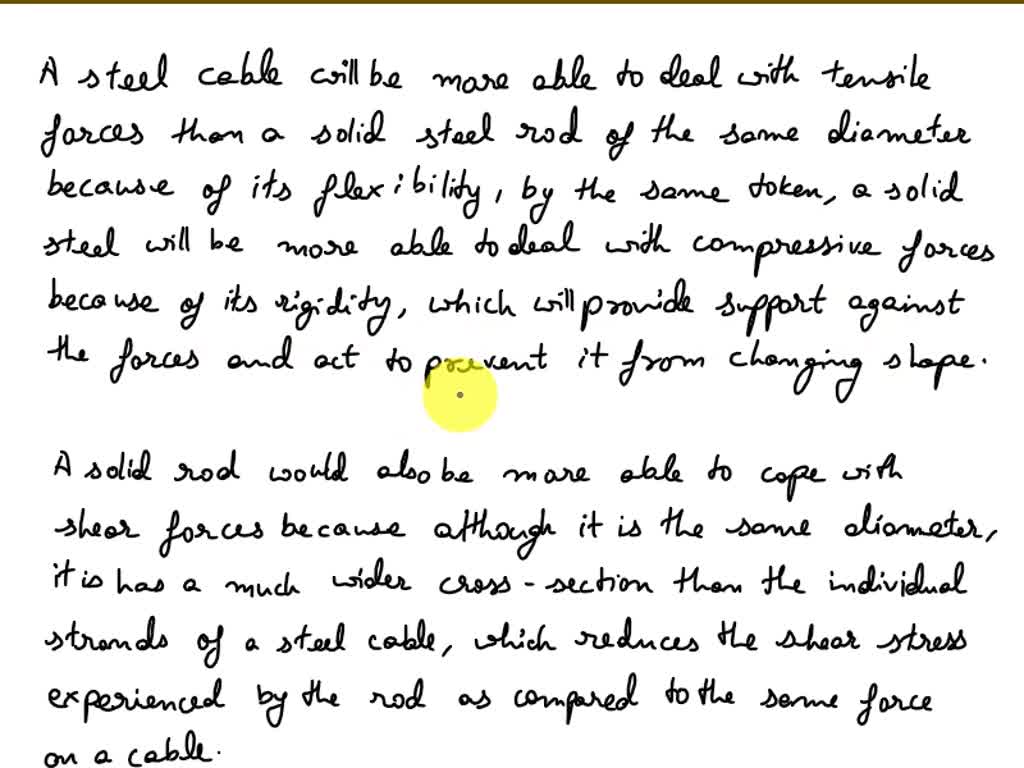 A steel cable will be more able to deal with tensile
forces than a solid steel rod of the same diameter
because of its flexibility, by the same token, a solid
steel will be more able to deal with compressive forces
because of its rigidity, which will provide support against
the forces and act to prevent it from changing shape.
A solid rod would also be more able to cope with
shear forces because although it is the same diameter,
it is has a much wider cross-section than the individual
strands of a steel cable, which reduces the shear stress
experienced by the rod as compared to the same force
on a cable.